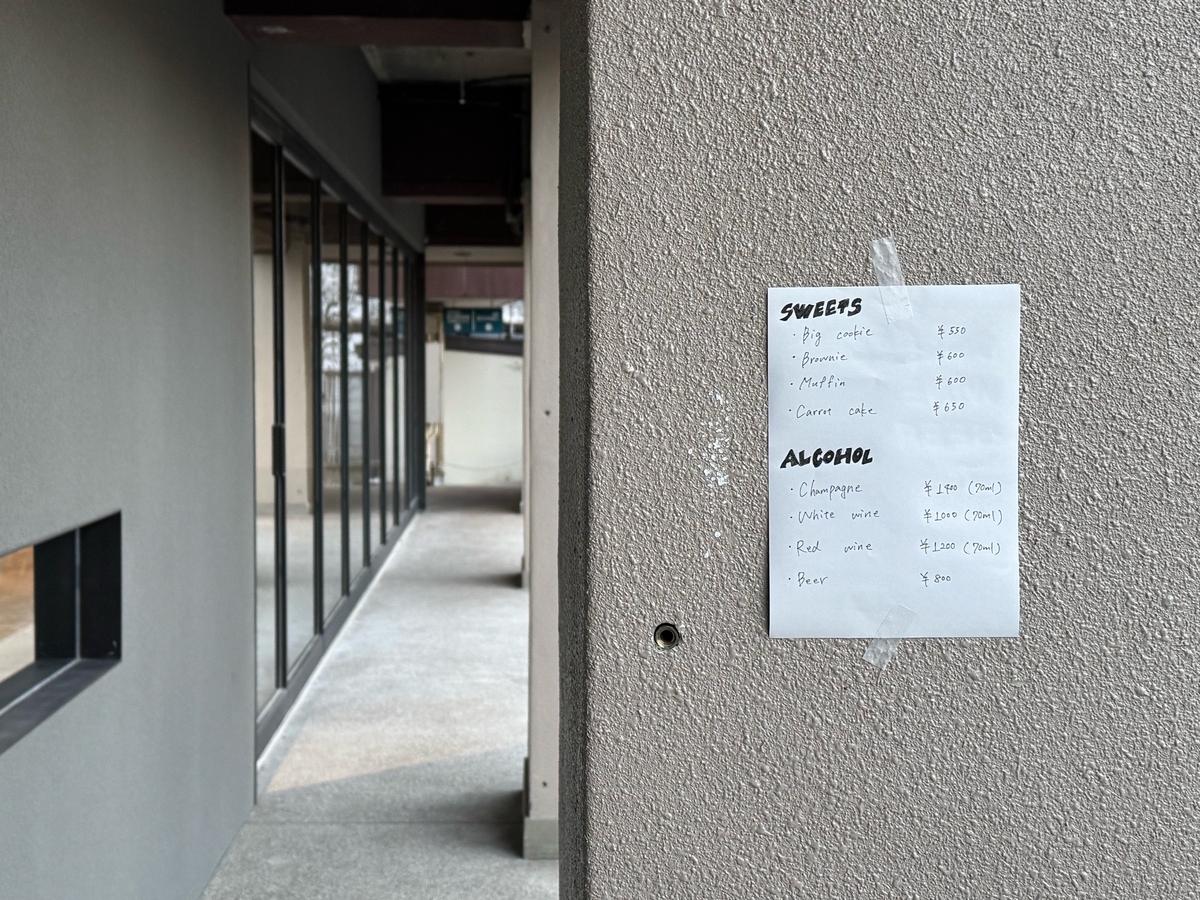 SWEETS
・Big cookie ¥550
・Brownie ¥600
・Muffin ¥600
・Carrot cake ¥650
ALCOHOL
・Champagne ¥1400 (70ml)
・White wine ¥1000 (70ml)
・Red wine ¥1200 (70ml)
・Beer ¥800